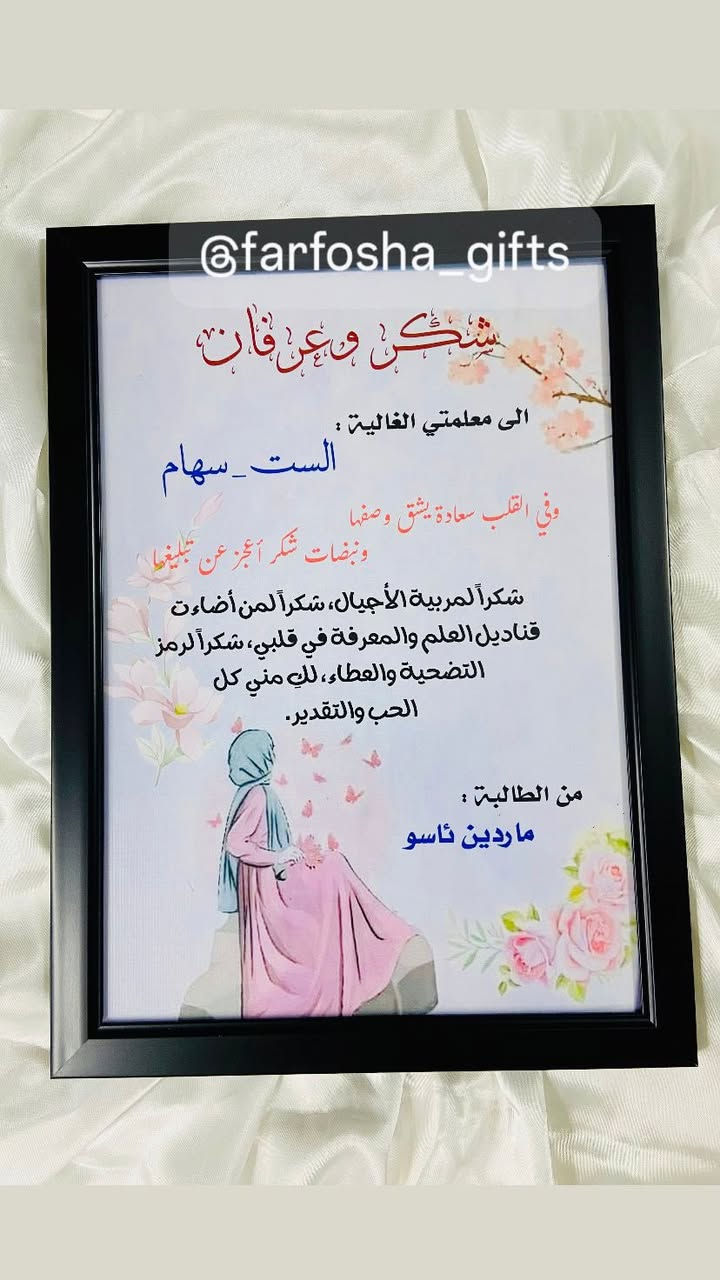 @farfosha_gifts
شكر وعرفان
الى معلمتي الغالية :
الست_سهام
وفي القلب سعادة يشق وصفها
ونبضات شكر أعجز عن تبليغها
شكراً لمربية الأجيال، شكراً لمن أضاءت
قناديل العلم والمعرفة في قلبي، شكراً لرمز
التضحية والعطاء، لكِ مني كل
الحب والتقدير.
من الطالبة :
ماردين ئاسو